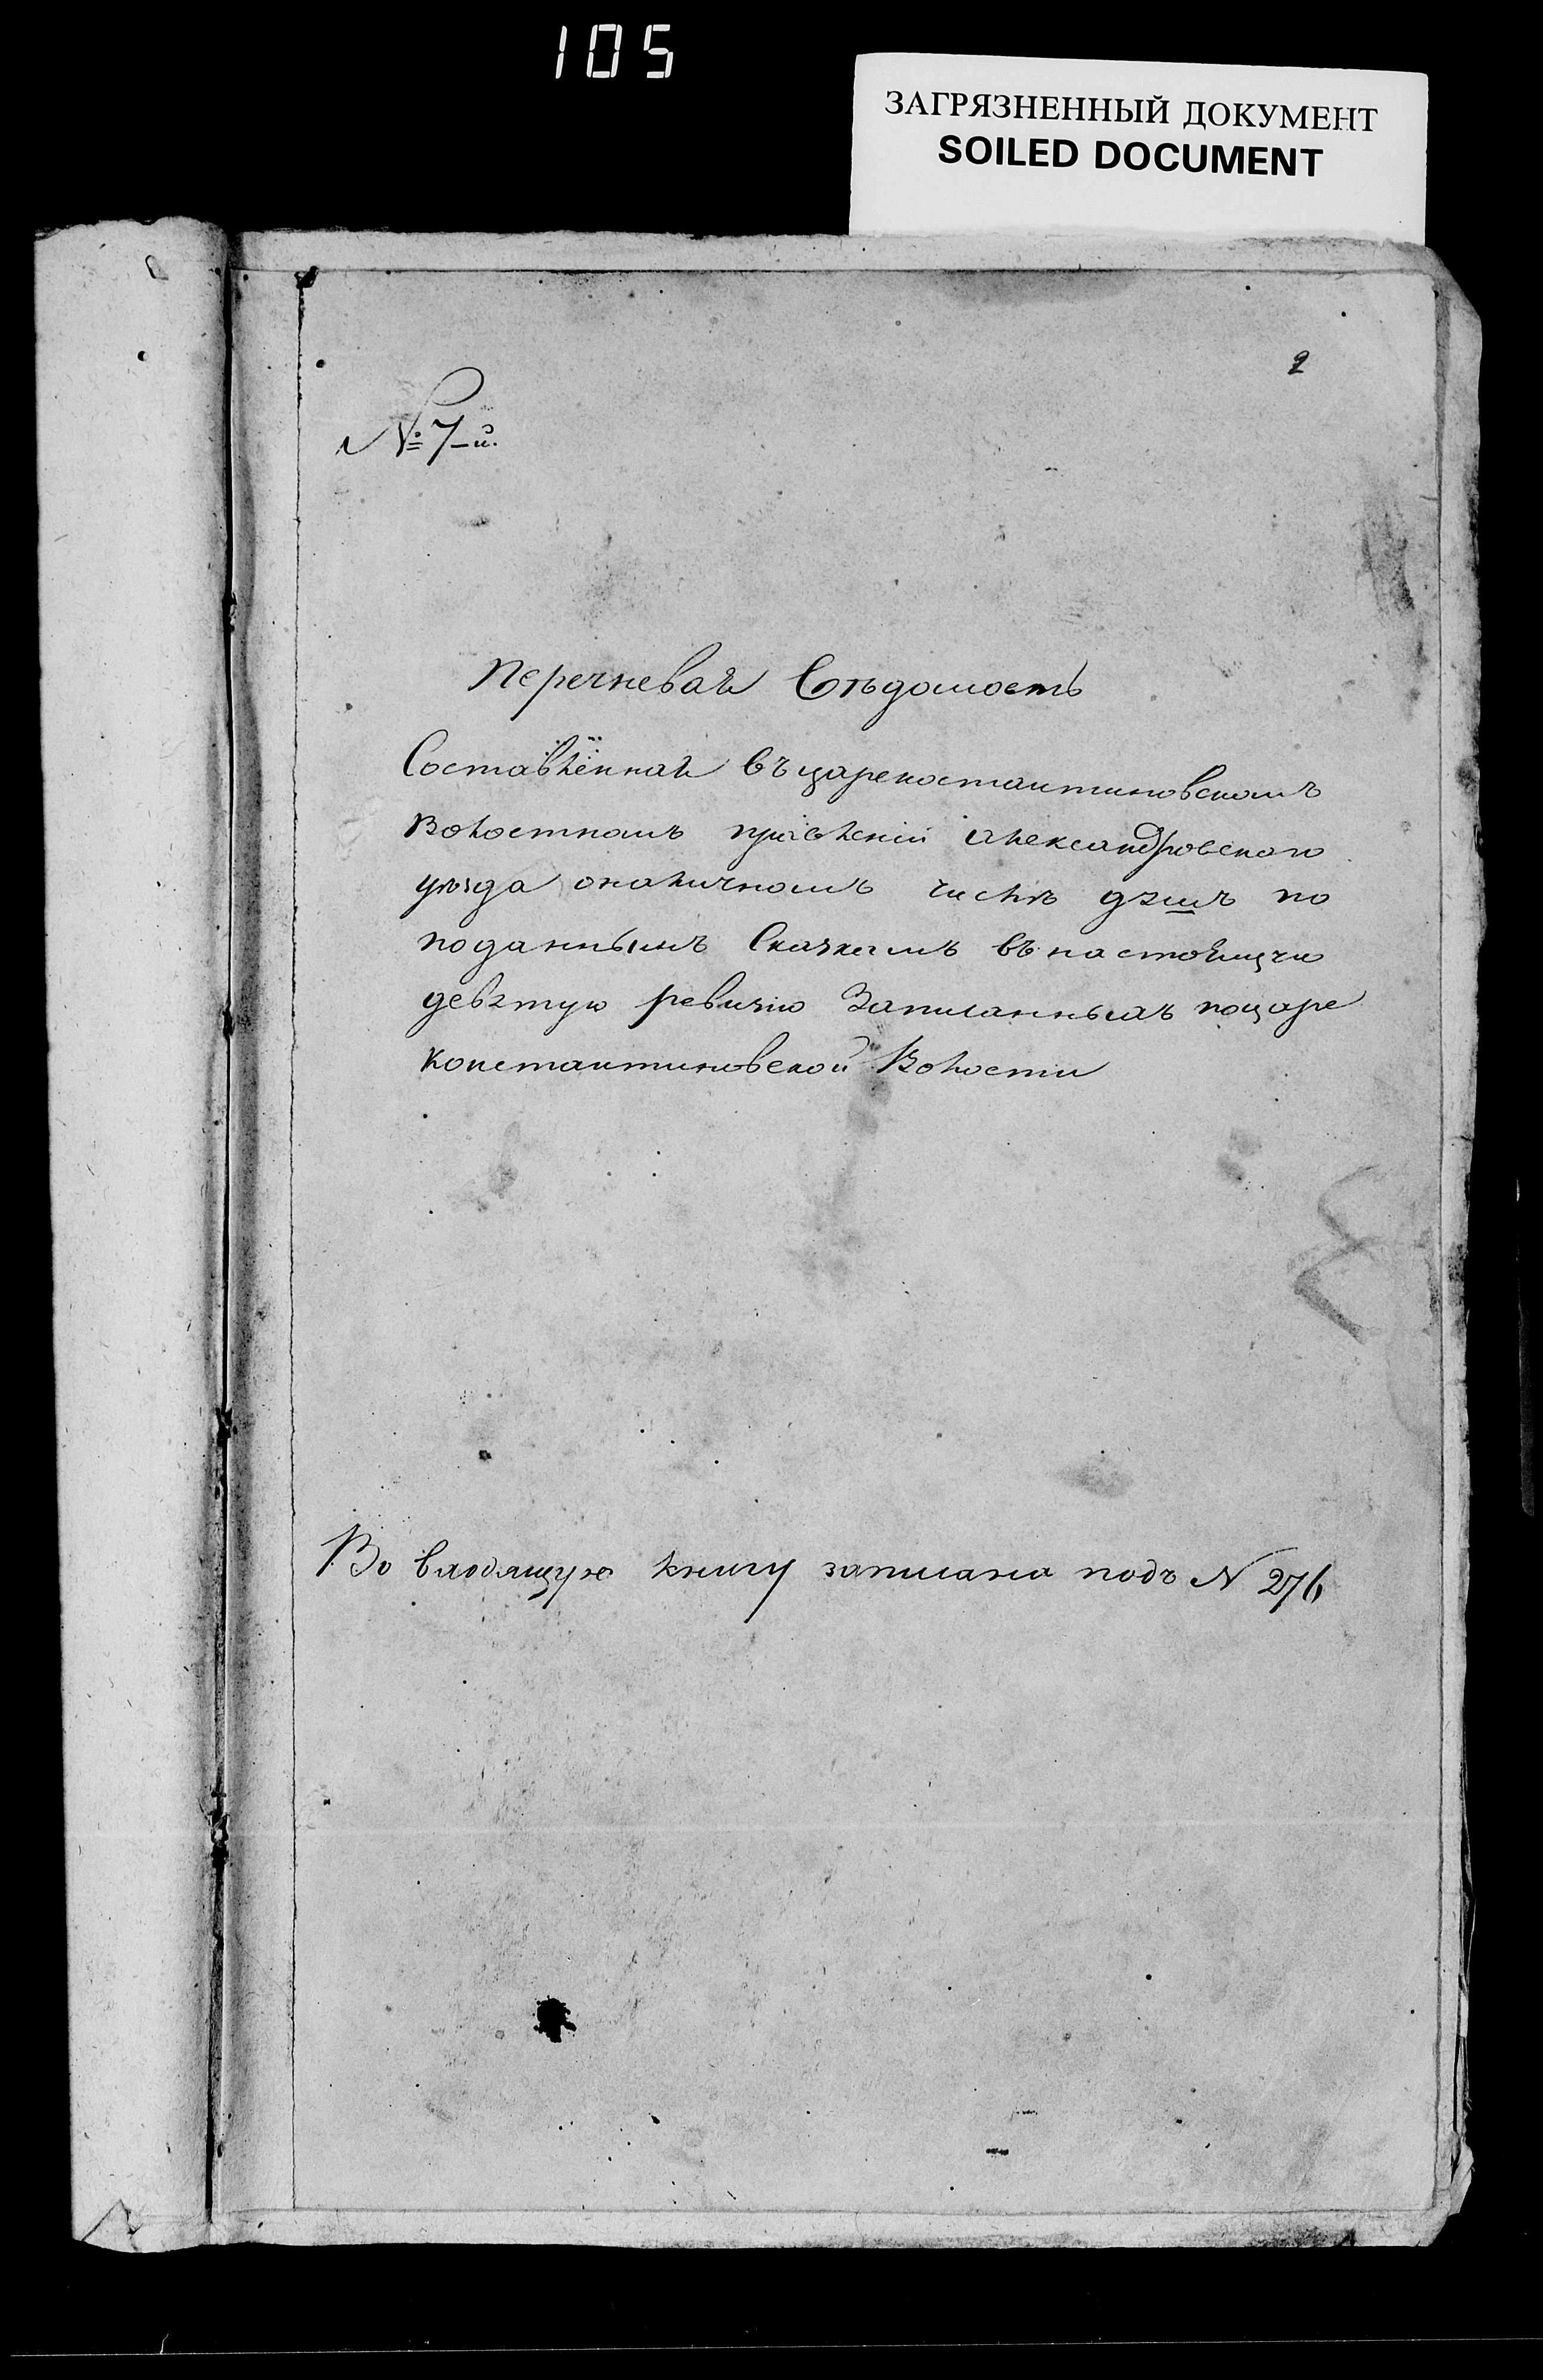 105
ЗАГРЯЗНЕННЫЙ ДОКУМЕНТ
SOILED DOCUMENT
2
№ 7-й.
Перечневая Вѣдомость
Составлённая въ царекостантиновскомъ
Волостномъ правленіи александровского
уѣзда оналичномъ числѣ дꙋшъ по
поданнымъ Сказкамъ въ настоящую
девятую ревизію Записанныхъ поцаре
константиновской Волости
Во входящую книгу записана подъ N 276